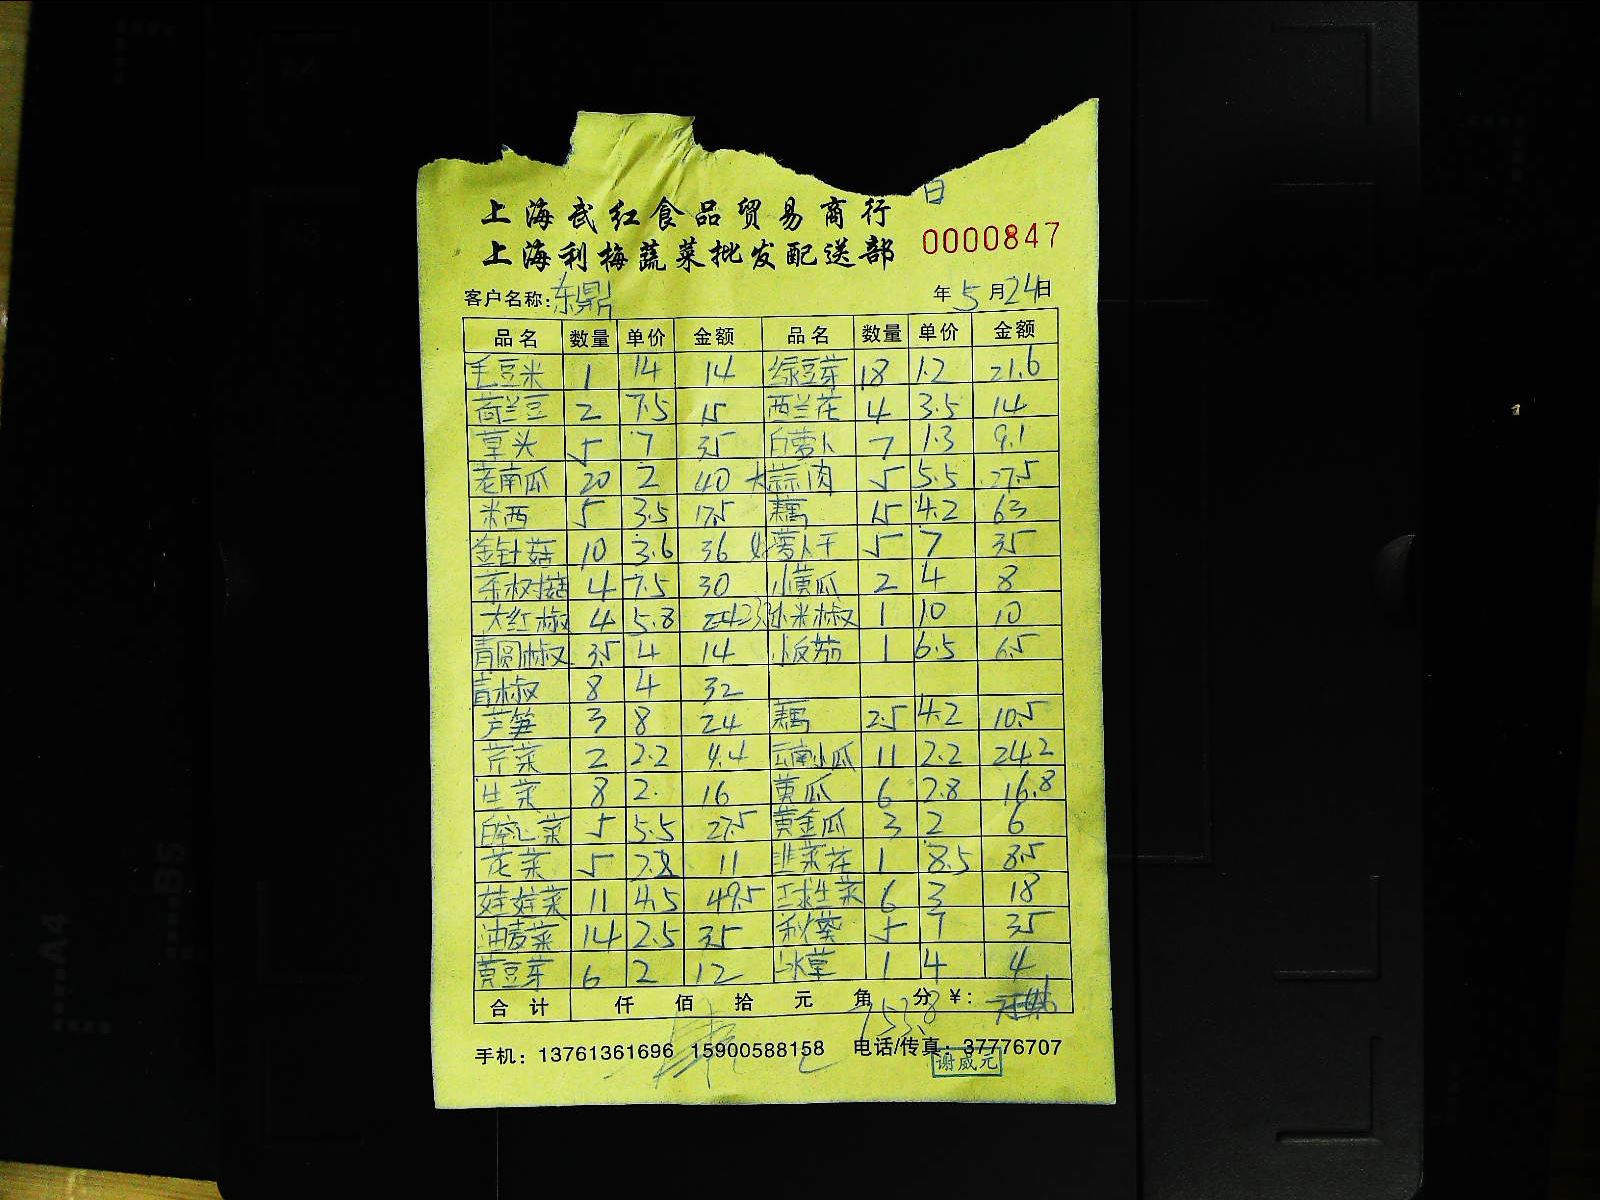 日
上海武红食品贸易商行
上海利梅蔬菜批发配送部 0000847
客户名称:东鼎 年 5 月 24 日
品名 数量 单价 金额 品名 数量 单价 金额
毛豆米 1 14 14 绿豆芽 18 1.2 21.6
荷兰豆 2 7.5 15 西兰花 4 3.5 14
草头 5 7 35 白萝卜 7 1.3 9.1
老南瓜 20 2 40 大蒜肉 5 5.5 27.5
米西 5 3.5 17.5 藕 15 4.2 63
金针菇 10 3.6 36 萝卜干 5 7 35
茶树菇 4 7.5 30 小黄瓜 2 4 8
大红椒 4 5.8 小米椒 1 10 10
青圆椒 3.5 4 14 小板茄 1 6.5 6.5
青椒 8 4 32
芦笋 3 8 24 藕 2.5 4.2 10.5
芹菜 2 2.2 4.4 云南小瓜 11 2.2 24.2
生菜 8 2. 16 黄瓜 6 2.8 16.8
白空心菜 5 5.5 27.5 黄金瓜 3 2 6
花菜 5 11 韭菜花 1 8.5 8.5
娃娃菜 11 4.5 49.5 球生菜 6 3 18
油麦菜 14 2.5 35 秋葵 5 7 35
黄豆芽 6 2 12 冰草 1 4 4
合计 仟 佰 拾 元 角 分 ¥:
753.8
手机: 13761361696 15900588158 电话/传真: 37776707
谢威元